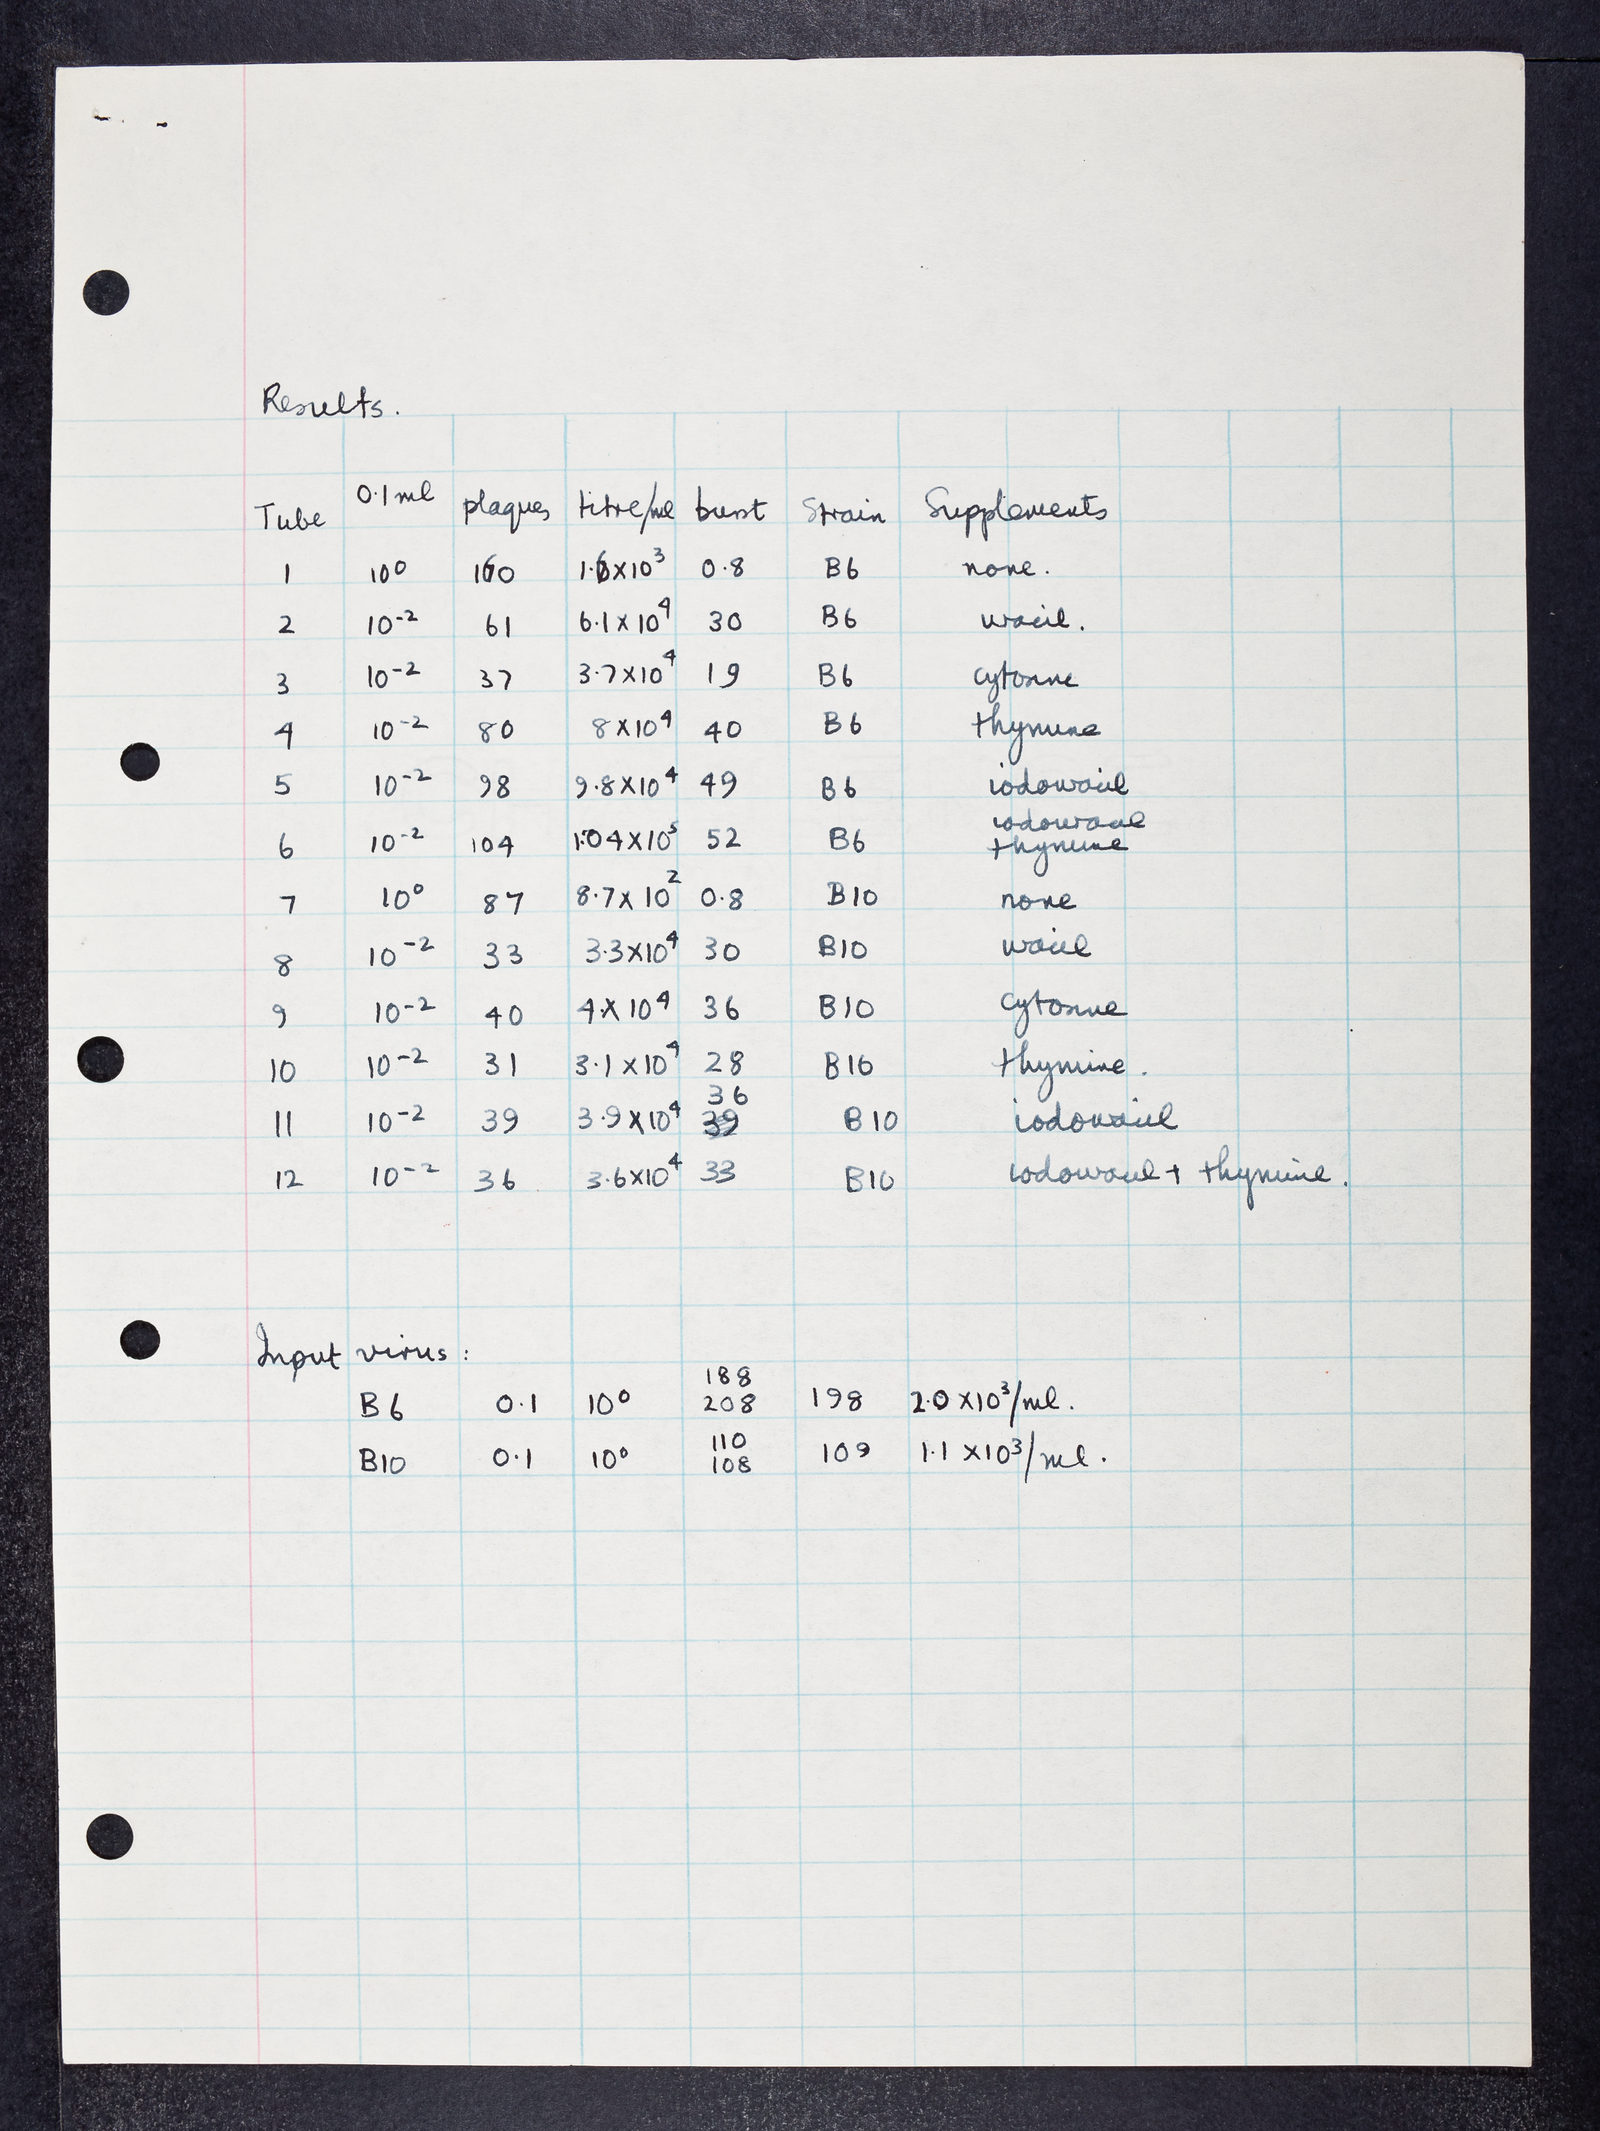 Results.
Tube 0.1ml plaques titre/ml burst Strain Supplements
1 10⁰ 160 1.6x10³ 0.8 B6 none.
2 10⁻² 61 6.1 x 10⁴ 30 B6 uracil.
3 10⁻² 37 3.7x10⁴ 19 B6 cytosine
4 10⁻² 80 8x10⁴ 40 B6 thymine
5 10⁻² 98 9.8x10⁴ 49 B6 iodouracil
6 10⁻² 104 1.04x10⁵ 52 B6 iodouracil thymine
7 10⁰ 87 8.7x10² 0.8 B10 none
8 10⁻² 33 3.3x10⁴ 30 B10 uracil
9 10⁻² 40 4x10⁴ 36 B10 cytosine
10 10⁻² 31 3.1x10⁴ 28 B10 thymine.
11 10⁻² 39 3.9x10⁴ 36 39 B10 iodouracil
12 10⁻² 36 3.6x10⁴ 33 B10 iodouracil + thymine.
Input virus:
B6 0.1 10⁰ 188 208 198 2.0 x10³/ml.
B10 0.1 10⁰ 110 108 109 1.1 x10³/ml.